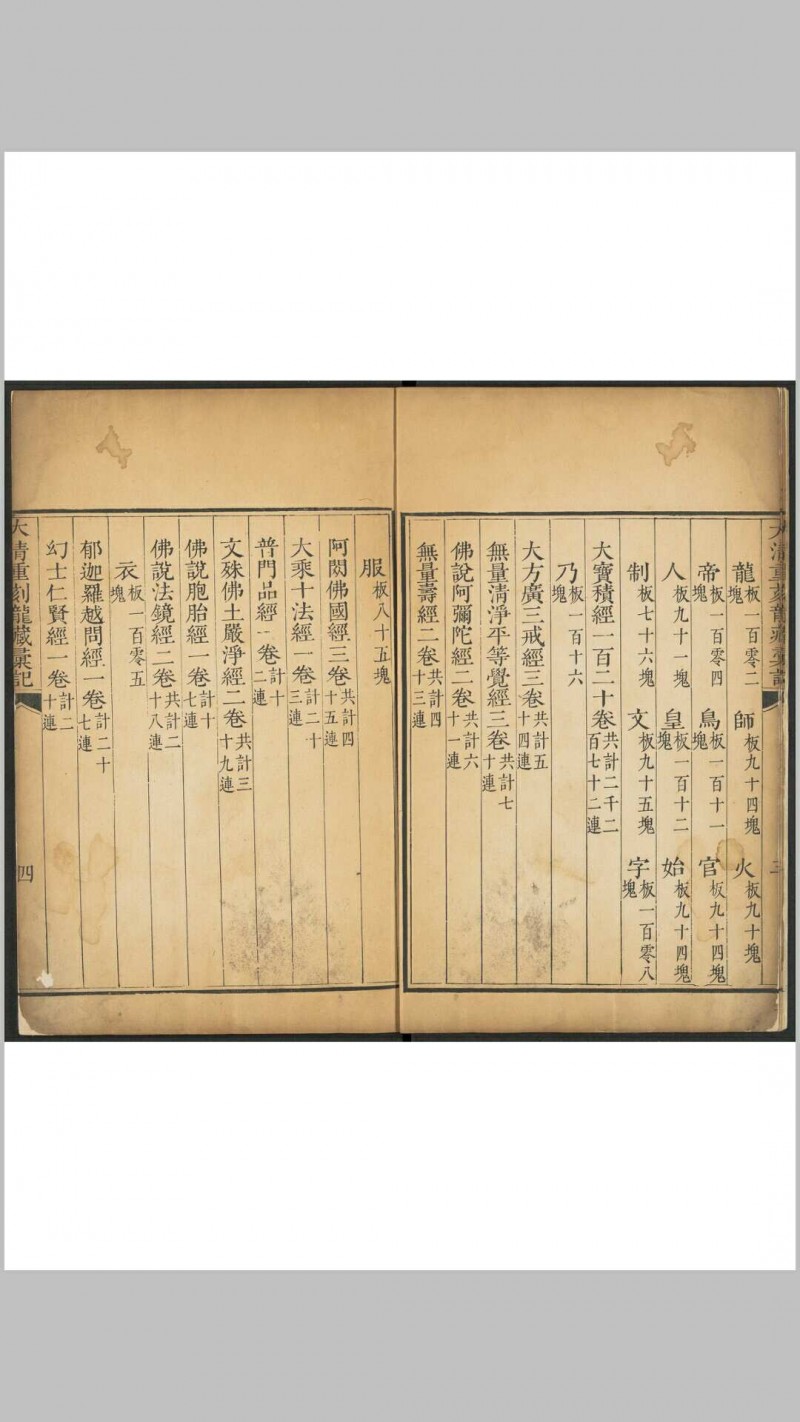 龍板一百零二塊 師板九十四塊 火板九十塊
帝板一百零四塊 鳥板一百十一塊 官板九十四塊
人板九十一塊 皇板一百十二塊 始板九十四塊
制板七十六塊 文板九十五塊 字板一百零八塊
大寶積經一百二十卷共計二千二百七十二連
乃板一百十六塊
大方廣三戒經三卷共計五十四連
無量清淨平等覺經三卷共計七十連
佛說阿彌陀經二卷共計六十一連
無量壽經二卷共計四十三連
服板八十五塊
阿閦佛國經三卷共計四十五連
大乘十法經一卷計二十三連
普門品經一卷計十二連
文殊佛土嚴淨經二卷共計三十九連
佛說胞胎經一卷計十七連
佛說法鏡經二卷共計二十八連
衣板一百零五塊
郁迦羅越問經一卷計二十七連
幻士仁賢經一卷計二十連
大清重刻龍藏彙記
四